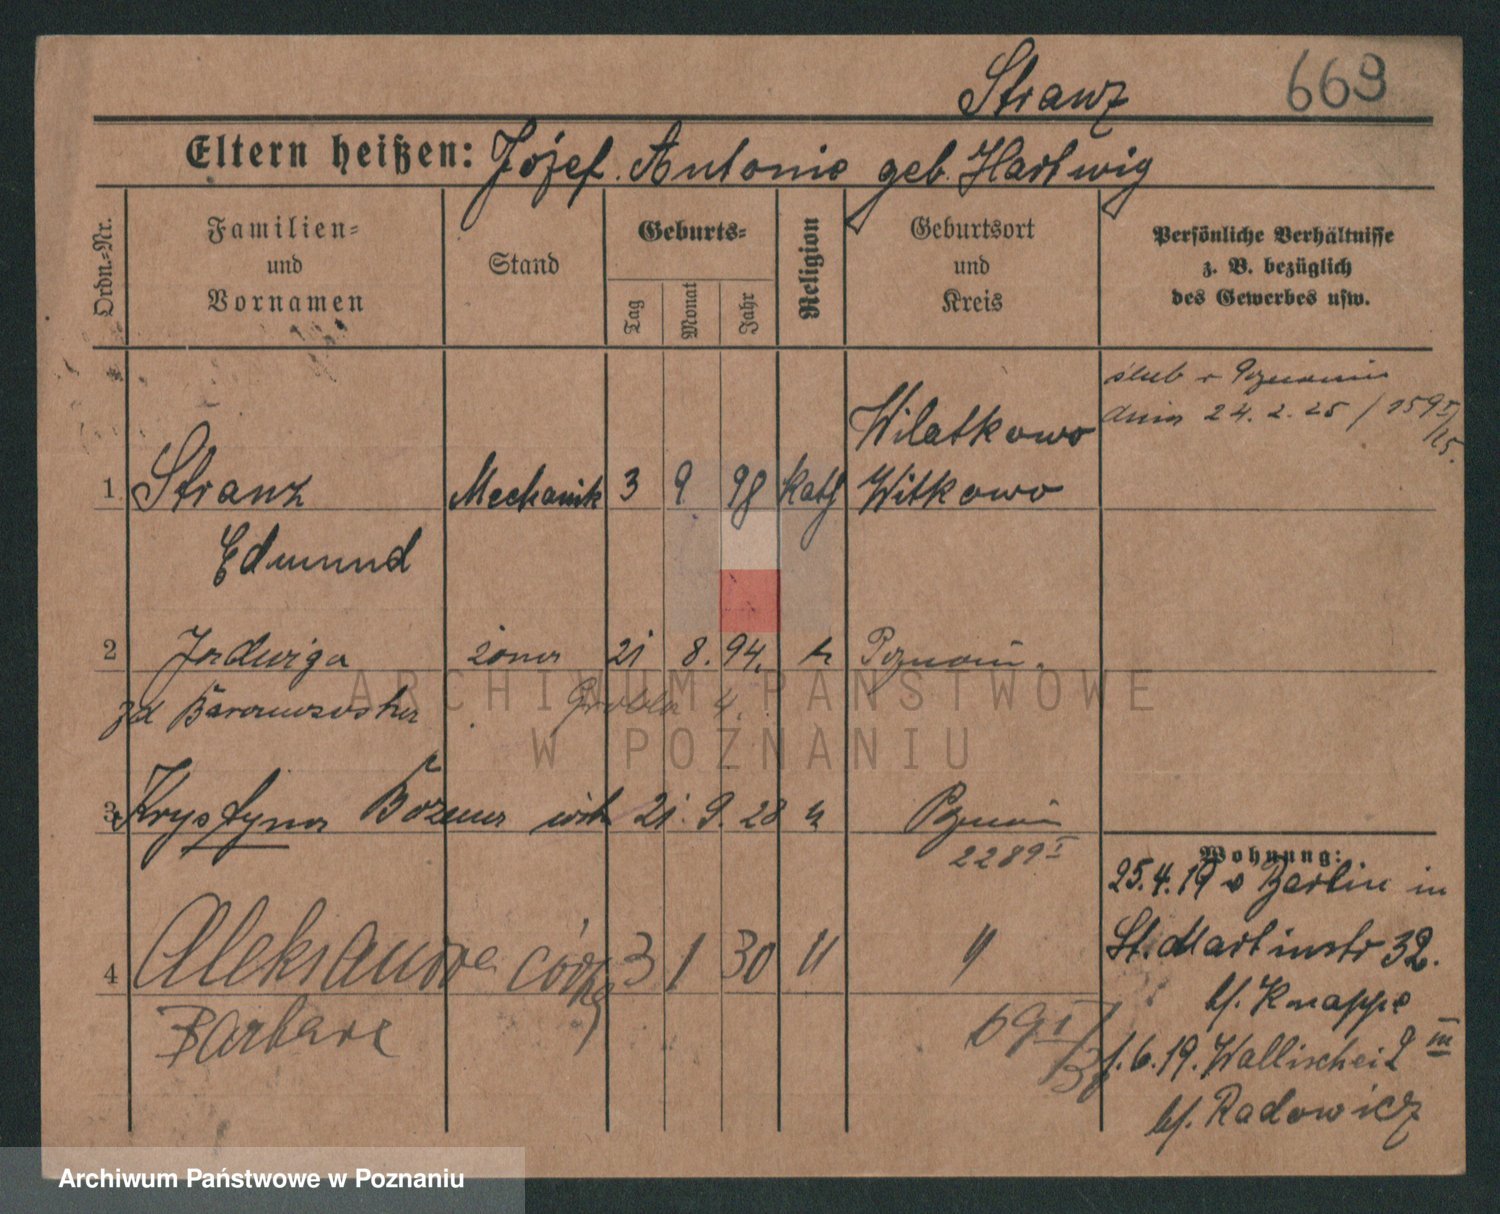 Stranz 669
Eltern heißen: Józef. Antonie geb. Hartwig
Ordn.-Nr.
Familien-
und
Vornamen
Stand
Geburts-
Tag
Monat
Jahr
Religion
Geburtsort
und
Kreis
Persönliche Verhältnisse
z. B. bezüglich
des Gewerbes usw.
ślub w Poznaniu
dnia 24. 2. 25 /
Wilatkowo
1 Stranz Mechanik 3 9 98 Kath Witkowo
Edmund
2 Jadwiga żona 21 8. 94. Poznań.
zd
Grobla 4.
3 Krystyna Bożena 21. 9. 28 Poznań
2289 I
Wohnung:
25.4.19 v Berlin in
4 Aleksandra córka 3 1 30 " "
St. Martinstr 32.
Barbara
bf. Knappe
1.6.19. Wallischei 2 III
bf. Radowicz
ARCHIWUM PAŃSTWOWE
W POZNANIU
Archiwum Państwowe w Poznaniu